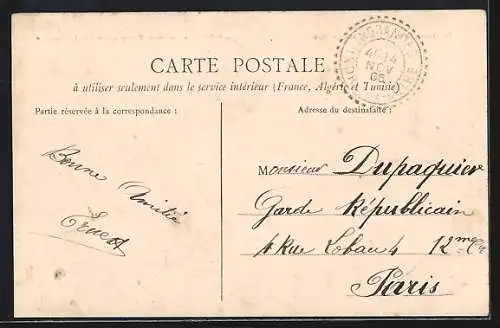 CARTE POSTALE
à utiliser seulement dans le service intérieur (France, Algérie et Tunisie)
Partie réservée à la correspondance :
Adresse du destinataire :
14
NOV
Bonne
Amitié
Ernest
Monsieur Dupaquier
Garde Républicain
4 Rue Lobau 4 12me Cie
Paris